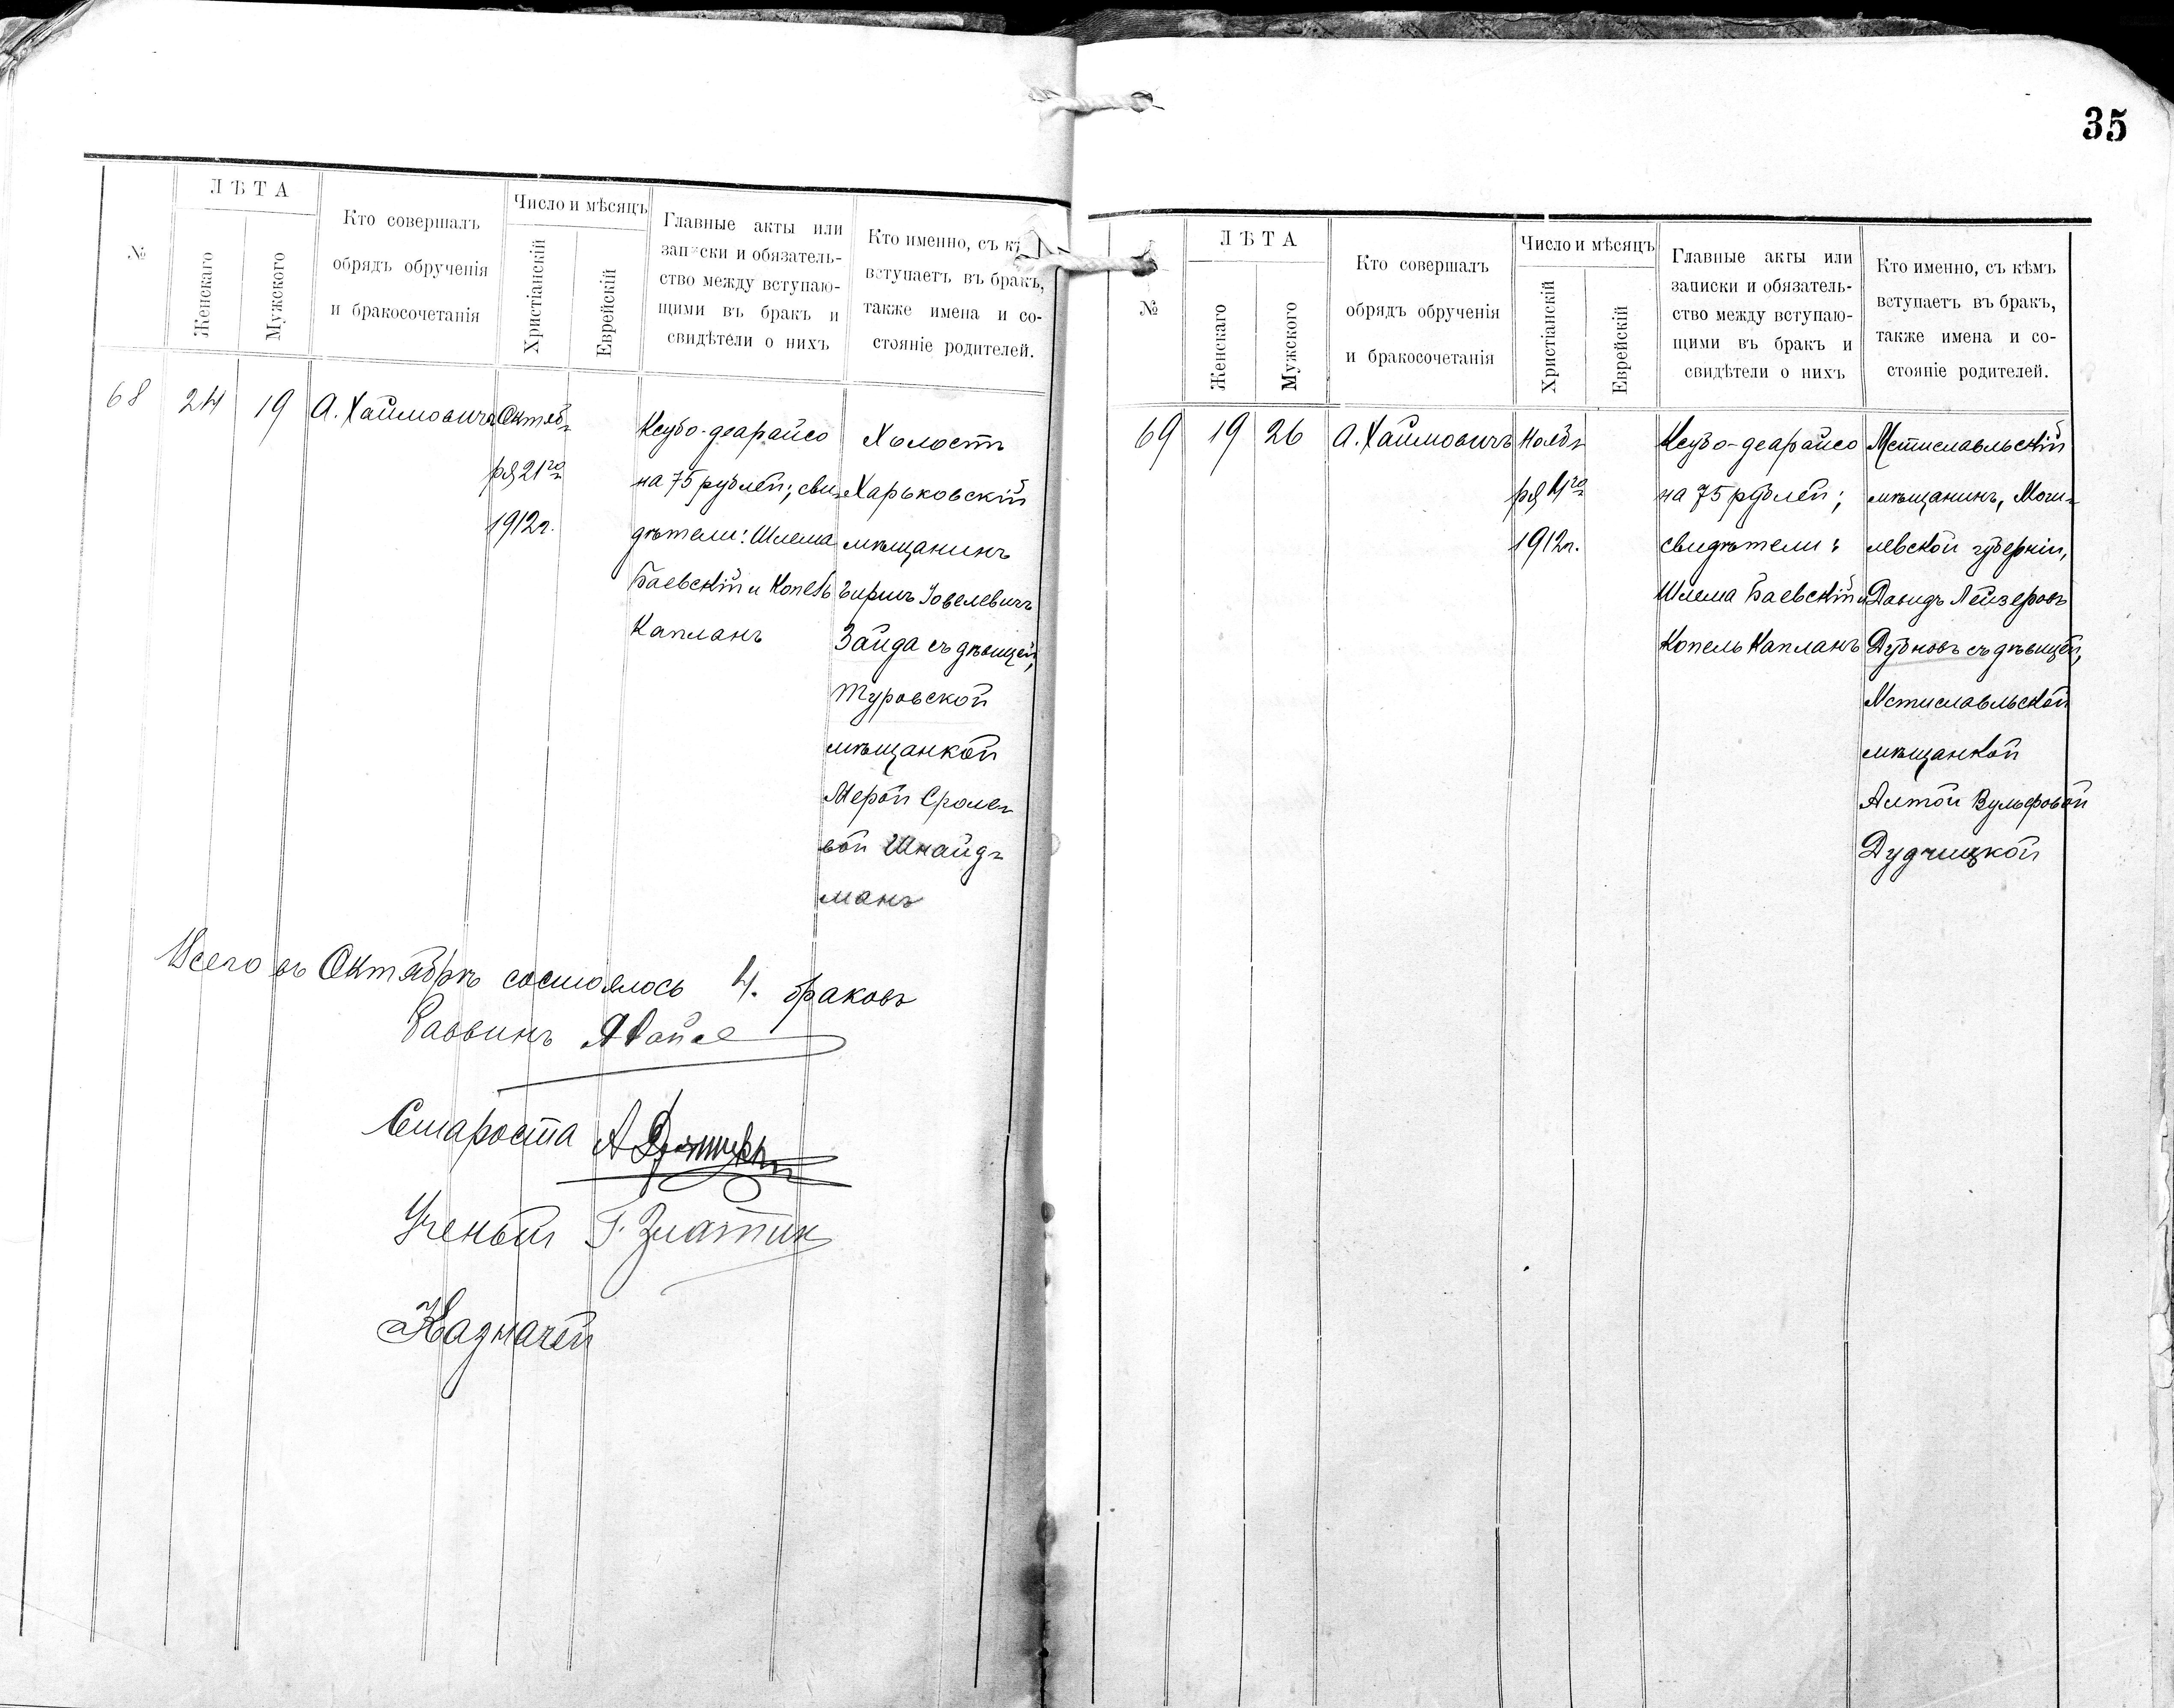 35
№
ЛѢТА
Женскаго
Мужского
Кто совершалъ
обрядъ обрученія
и бракосочетанія
Число и мѣсяцъ
Христіанскій
Еврейскій
Главные акты или
записки и обязатель-
ство между вступаю-
щими въ бракъ и
свидѣтели о нихъ
Кто именно, съ
вступаетъ въ бракъ,
также имена и со-
стояніе родителей.
68
24
19
А. Хаймовичъ
Октяб-
ря 21го
1912г.
Ксубо-деарайсо
на 75 рублей; сви-
дѣтели: Шлема
Баевскій и Копель
Капланъ
Холостъ
Харьковскій
мѣщанинъ
Гиршъ Іовелевичъ
Зайда съ дѣвицей,
Туровской
мѣщанкой
Мерой Сроле-
вой Шнайд-
манъ
Всего въ Октябрѣ состоялось 4. браковъ
Раввинъ
Староста
Ученый Г. Златин
Казначей
№
ЛѢТА
Женскаго
Мужского
Кто совершалъ
обрядъ обрученія
и бракосочетанія
Число и мѣсяцъ
Христіанскій
Еврейскій
Главные акты или
записки и обязатель-
ство между вступаю-
щими въ бракъ и
свидѣтели о нихъ
Кто именно, съ кѣмъ
вступаетъ въ бракъ,
также имена и со-
стояніе родителей.
69
19
26
А. Хаймовичъ
Нояб-
ря 4го
1912г.
Ксубо-деарайсо
на 75 рублей;
свидѣтели:
Шлема Баевскій и
Копель Капланъ
Мстиславльскій
мѣщанинъ, Моги-
левской губерніи,
Давидъ Лейзеровъ
Дубновъ съ дѣвицей,
Мстиславльской
мѣщанкой
Алтой Вульфовой
Дудчицкой